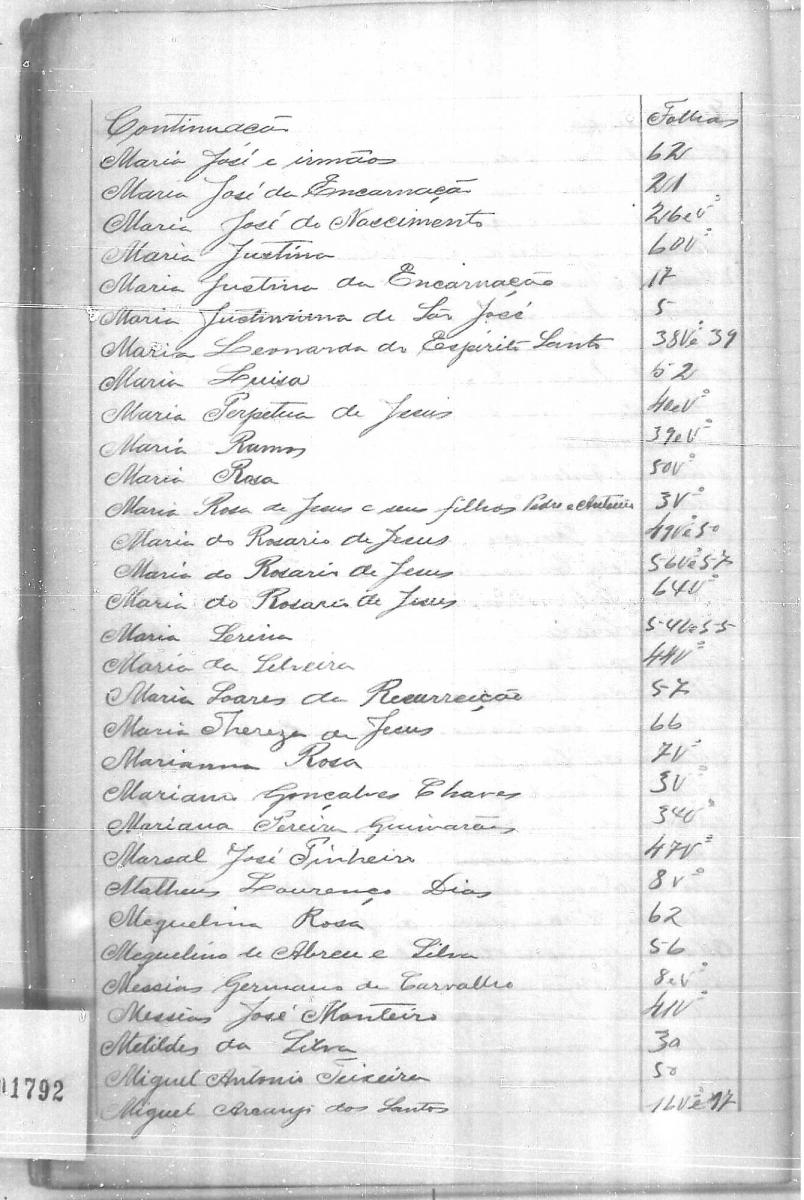 Continuação Folhas
Maria José e irmãos 62
Maria José da Encarnação 21
Maria José do Nascimento 26 e vº
Maria Justina 60vº
Maria Justina da Encarnação 17
Maria Justiniana de São José 5
Maria Leonarda do Espírito Santo 38vº e 39
Maria Luisa 52
Maria Perpetua de Jesus 40 e vº
Maria Ramos 39 e vº
Maria Rosa 50vº
Maria Rosa de Jesus e seus filhos Pedro e Antonio 3vº
Maria do Rosario de Jesus 49vº e 50
Maria do Rosario de Jesus 56vº e 57
Maria do Rosario de Jesus 64vº
Maria Serina 54vº e 55
Maria da Silveira 44vº
Maria Soares da Ressurreição 57
Maria Thereza de Jesus 66
Marianna Rosa 7vº
Mariano Gonçalves Chaves 3vº
Mariana Pereira Guimarães 34vº
Marsal José Pinheiro 47vº
Matheus Lourenço Dias 8vº
Mequelina Rosa 62
Mequelino de Abreu e Silva 56
Messias Germano de Carvalho 8 e vº
Messias José Monteiro 41vº
Metildes da Silva 30
Miguel Antonio Teixeira 50
Miguel Arcanjo dos Santos 16vº e 17
1792